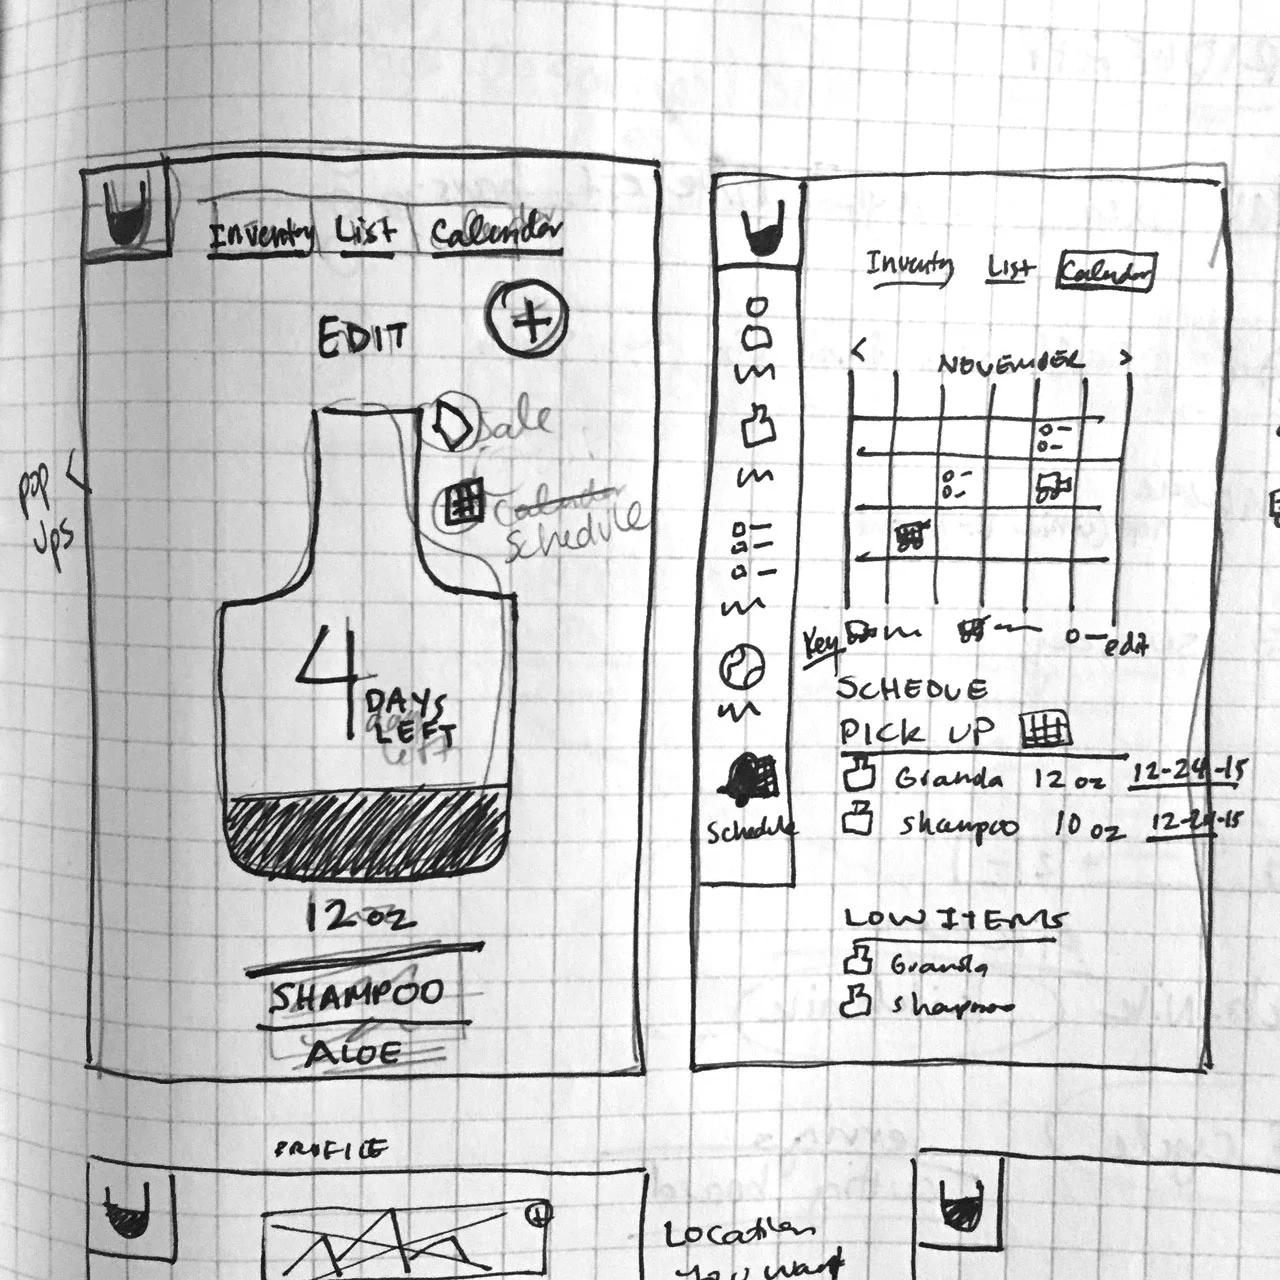 Inventory List Calendar
EDIT
+
Sale
Calendar
Schedule
pop
ups
4
DAYS
LEFT
12 oz
SHAMPOO
ALOE
Inventy List Calendar
< NOVEMBER >
Key
edit
SCHEDUE
PICK UP
Granda 12 oz 12-24-15
Shampoo 10 oz 12-24-15
Schedule
LOW ITEMS
Granda
Shampoo
PROFILE
Location
You want